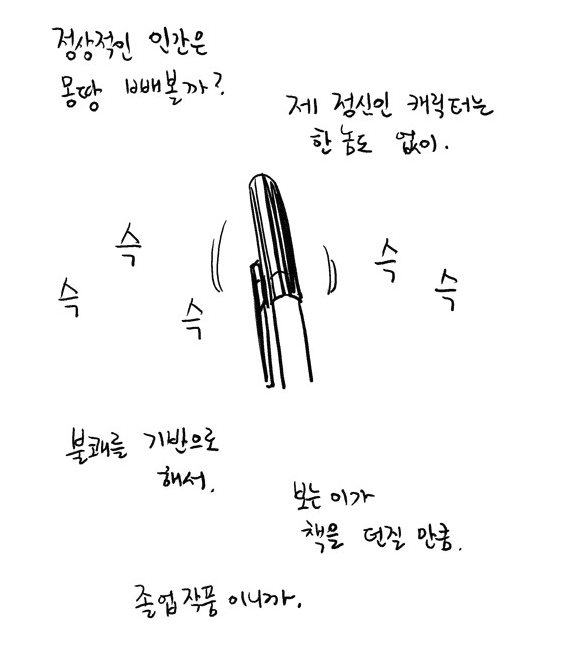 정상적인 인간은
몽땅 빼볼까?
제 정신인 캐릭터는
한 놈도 없이.
슥
슥
슥
슥
슥
불쾌를 기반으로
해서.
보는 이가
책을 던질 만큼.
졸업작품이니까.